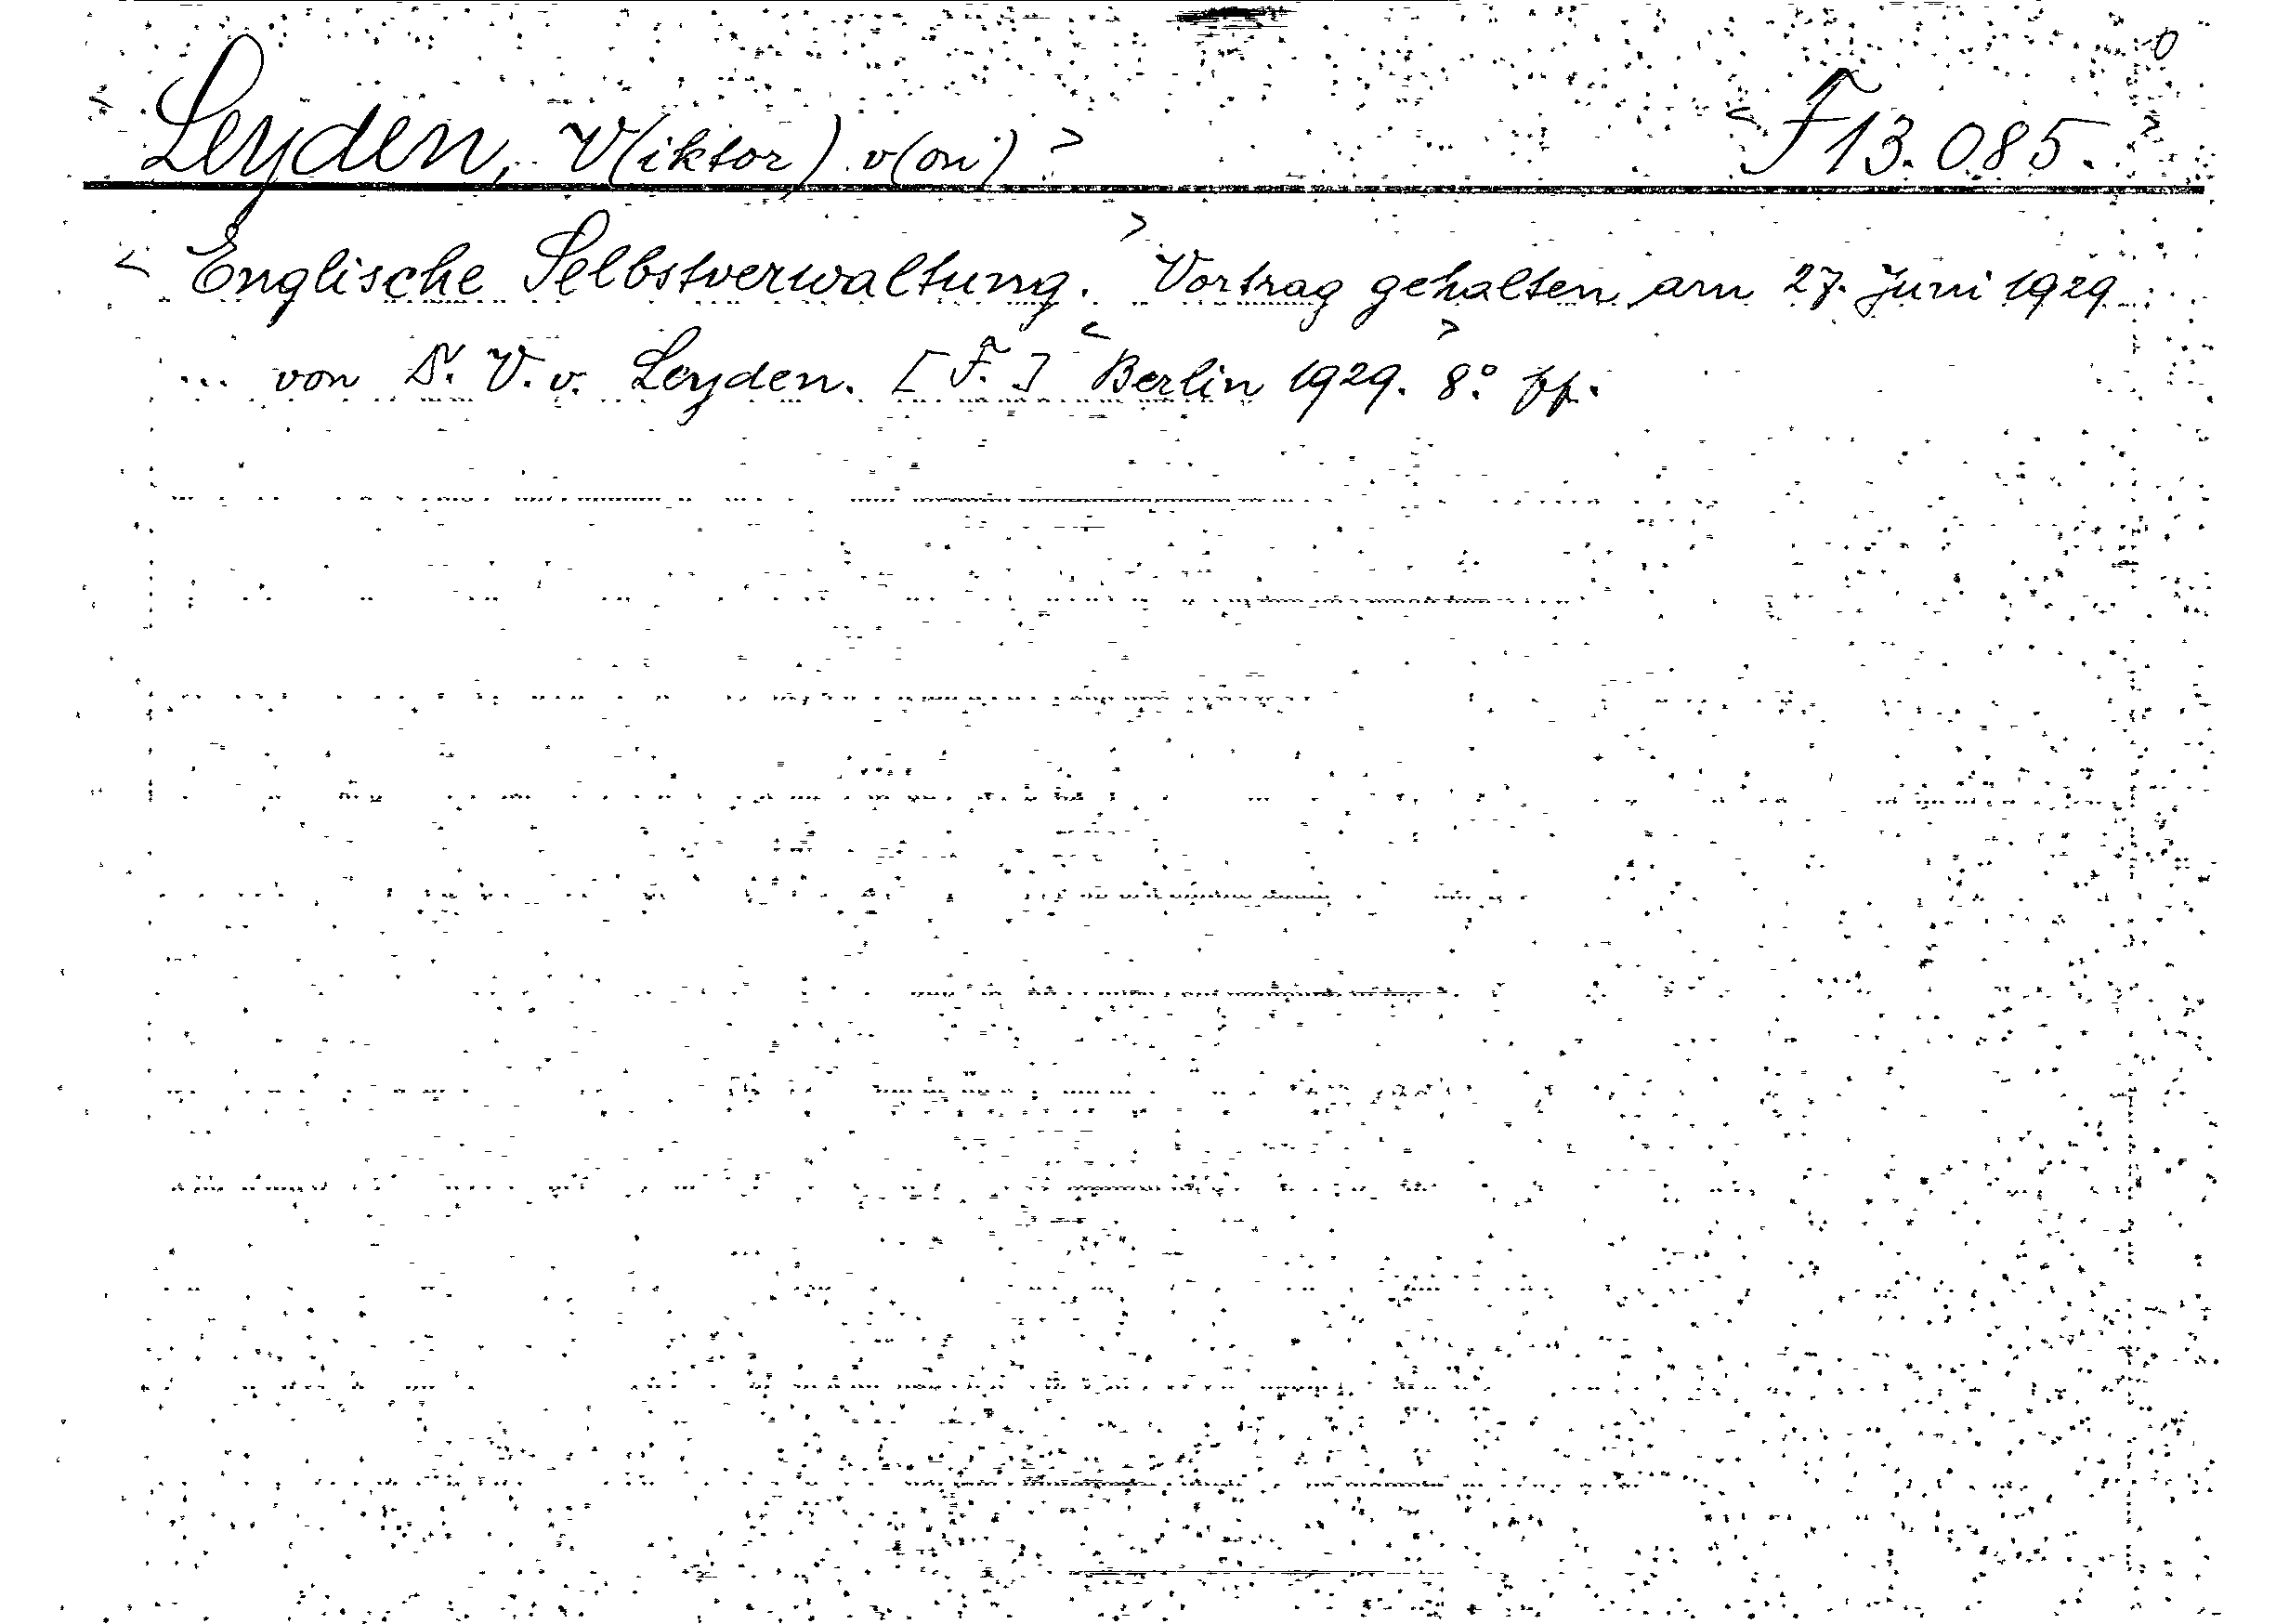 < Leyden, V(iktor) v(on) > < F 13.085. >
< Englische Selbstverwaltung. > Vortrag gehalten am 27. Juni 1929
... von Dr. V. v. Leyden. [F.] < Berlin 1929. > 8°.